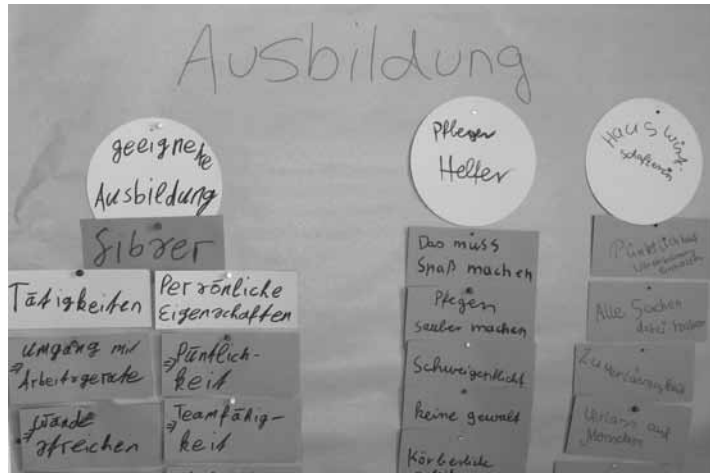 Ausbildung
geeignete
Ausbildung
Fibrer
Tätigkeiten
Persönliche
Eigenschaften
Umgang mit
⇒ Arbeitsgeräte
⇒ Pünktlich-
keit
⇒ Wände
streichen
⇒ Teamfähig-
keit
Pfleger
Helfer
Das muss
Spaß machen
Pflegen
sauber machen
Schweigepflicht
keine gewalt
Körperliche
Hauswirt-
schafterin
Pünktlichkeit
Alle Sachen
dabei haben
Zuverlässigkeit
Verlass auf
Menschen